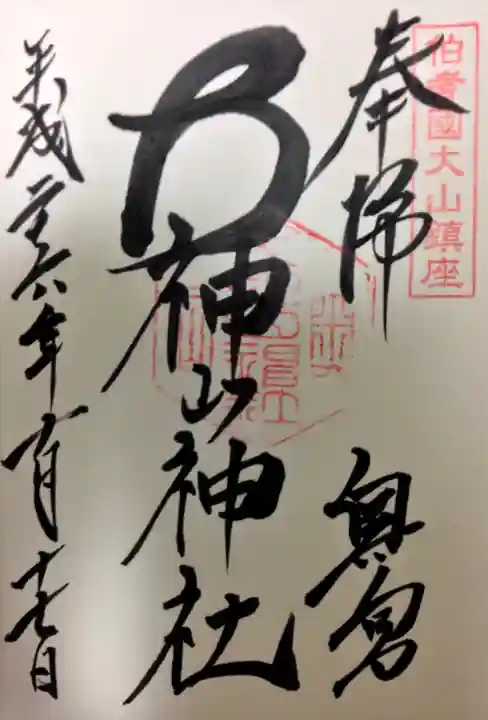 伯耆國大山鎮座
奉拝
奥宮
大神山神社
平成二十六年十一月十七日